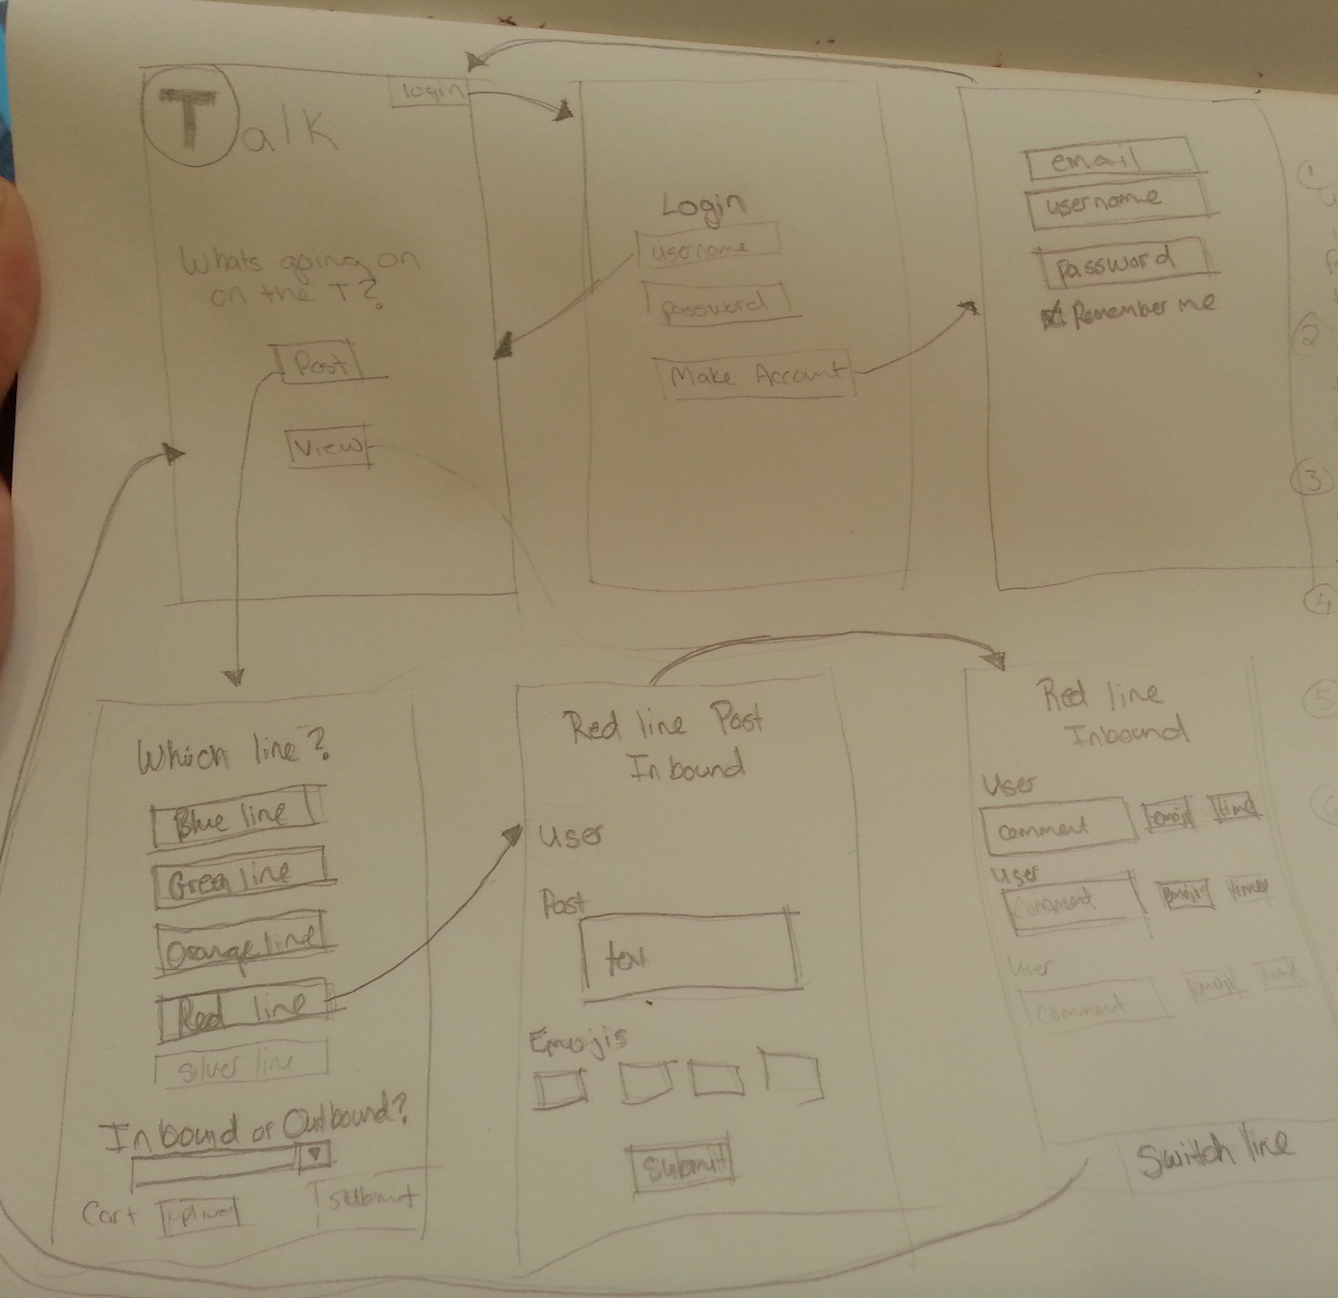 Talk
login
Whats going on
on the T?
Post
View
Login
username
password
Make Account
email
username
password
Remember me
1
2
3
4
5
Which line?
Blue line
Green line
Orange line
Red line
Silver line
Inbound or Outbound?
Cart
Submit
Red line Post
Inbound
User
Post
text
Emojis
Submit
Red line
Inbound
User
comment emoji time
User
comment emoji time
User
comment emoji time
Switch line